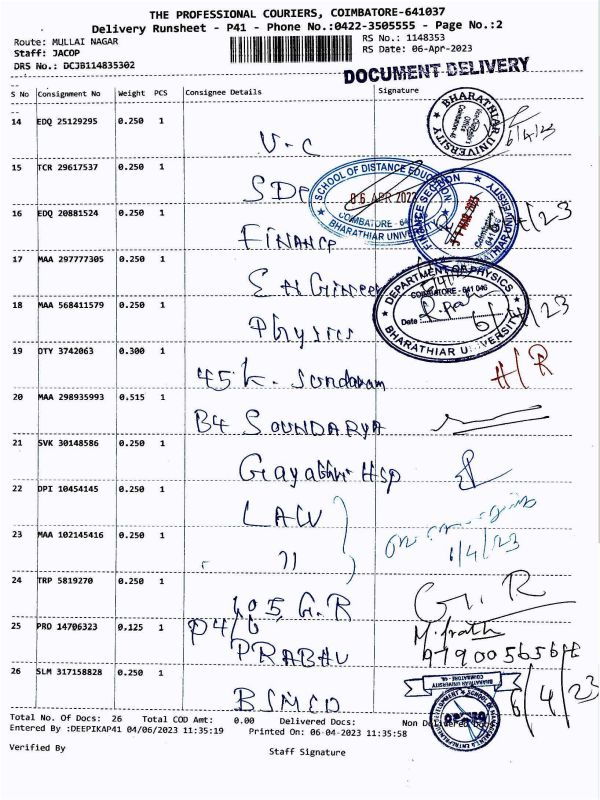 THE PROFESSIONAL COURIERS, COIMBATORE-641037
Delivery Runsheet - P41 - Phone No.:0422-3505555 - Page No.:2
Route: MULLAI NAGAR
RS No.: 1148353
Staff: JACOP
RS Date: 06-Apr-2023
DRS No.: DCJB114835302
DOCUMENT DELIVERY
S No Consignment No Weight PCS Consignee Details Signature
14 EDQ 25129295 0.250 1
V-C
BHARATHIAR UNIVERSITY
6/4/23
15 TCR 29617537 0.250 1
SDE
SCHOOL OF DISTANCE EDUCATION
06 APR 2023
COIMBATORE - 641
BHARATHIAR UNIVERSITY
16 EDQ 20881524 0.250 1
FINANCE
FINANCE SECTION
BHARATHIAR UNIVERSITY
Coimbatore
641 046
4/23
17 MAA 297777305 0.250 1
Engineer
18 MAA 568411579 0.250 1
Physics
DEPARTMENT OF PHYSICS
COIMBATORE - 641 046
Date :
BHARATHIAR UNIVERSITY
6/4/23
19 DTY 3742063 0.300 1
45 K. Sundaram
H/R
20 MAA 298935993 0.515 1
B4 SOUNDARYA
21 SVK 30148586 0.250 1
Gayathri Hsp
22 DPI 10454145 0.250 1
LAW
23 MAA 102145416 0.250 1
11
1/4/23
24 TRP 5819270 0.250 1
405 G.R
G.R
25 PRO 14706323 0.125 1
P4/6,
PRABHU
26 SLM 317158828 0.250 1
BSMED
BHARATHIAR UNIVERSITY
COIMBATORE - 46
6/4/23
Total No. Of Docs: 26 Total COD Amt: 0.00 Delivered Docs: Non Delivered Docs
Entered By :DEEPIKAP41 04/06/2023 11:35:19 Printed On: 06-04-2023 11:35:58
Verified By
Staff Signature